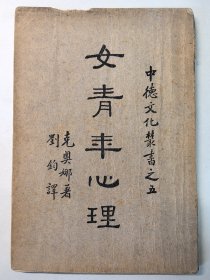 中德文化叢書之五
女青年心理
克奧娜著
劉鈞譯